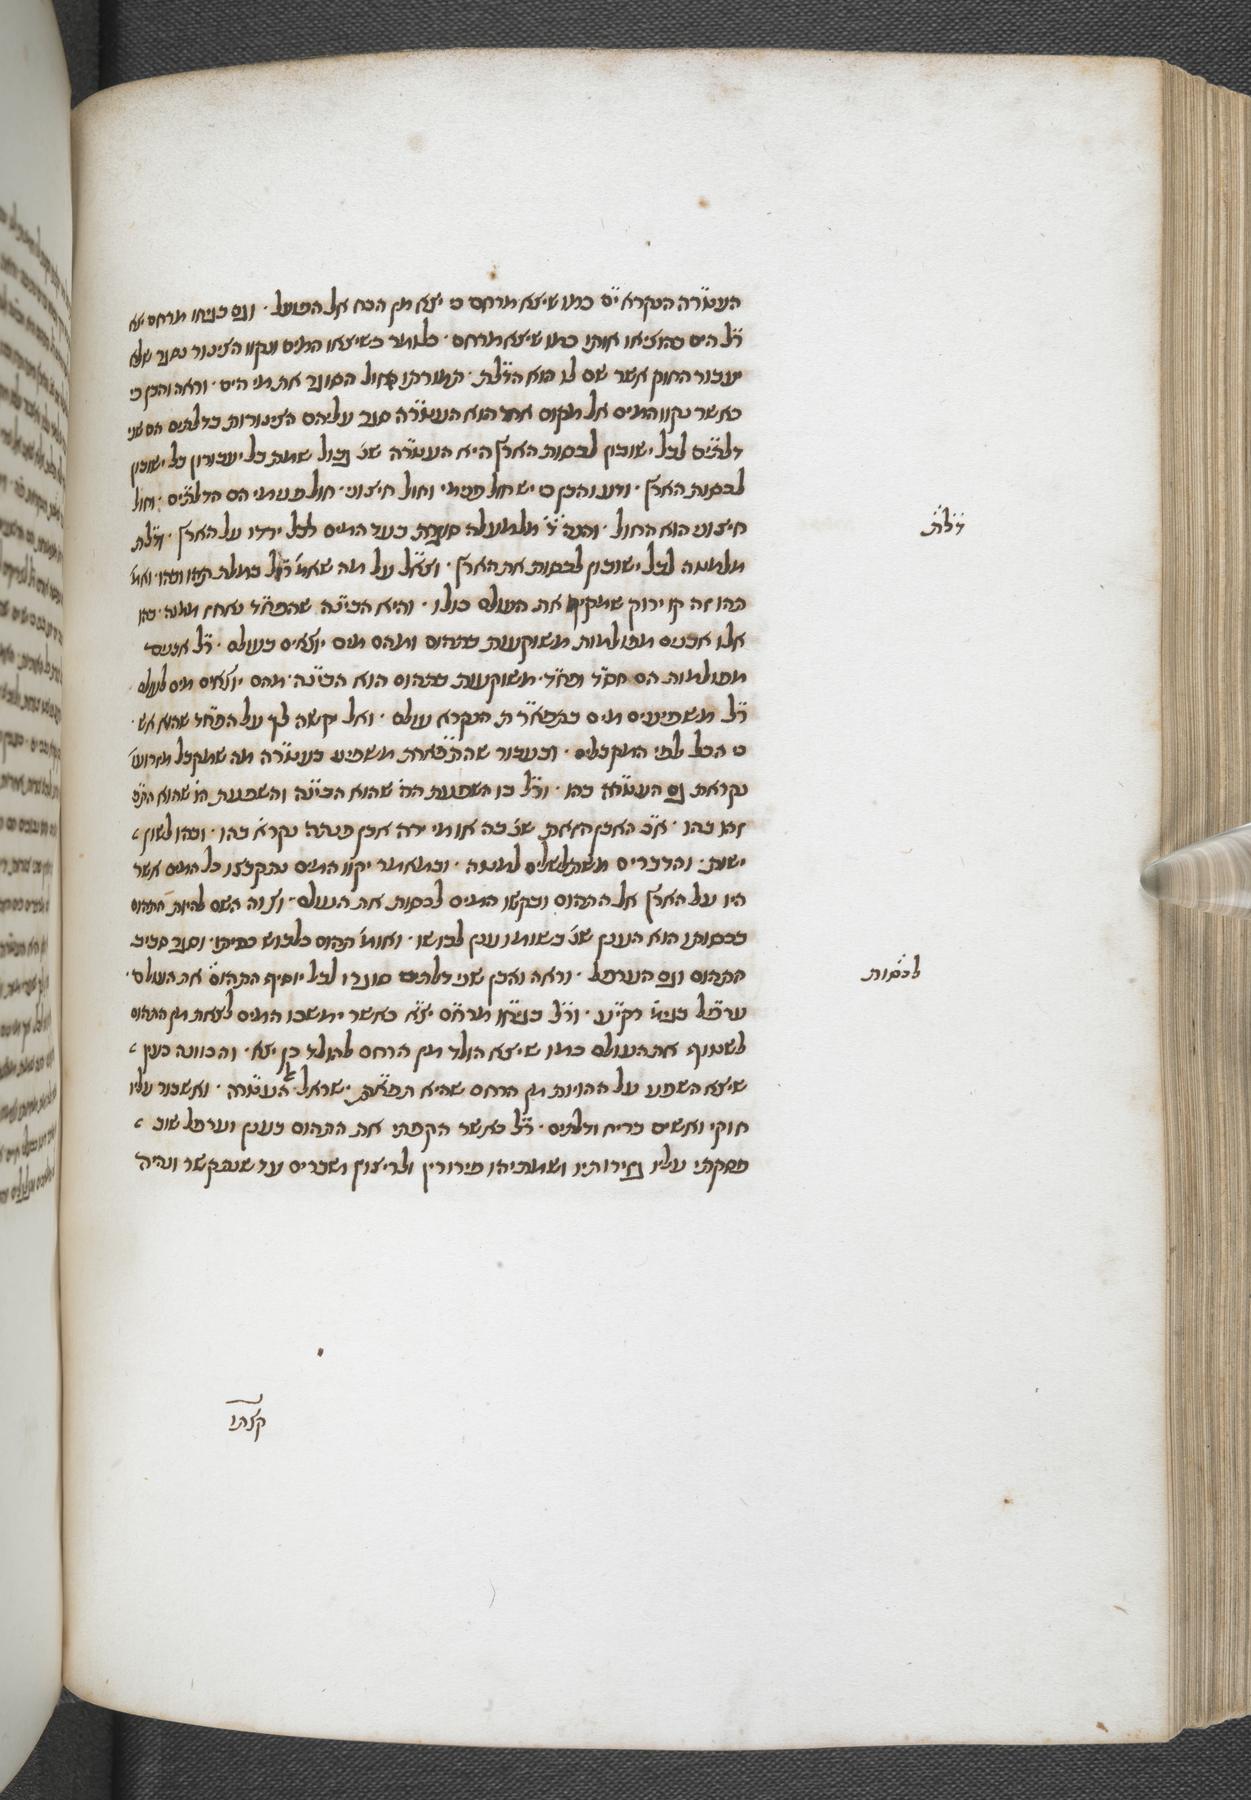 העטר״ה הנקרא י״ם כמו שיצא מרחם כי יצא מן הכח אל הפועל · וגם בגיחו מרחם יצא
ר״ל הים כהוציאו אותו כמו שיצא מרחם · כלומר כשיצאו המים ונקוו הצינור נסגר שלא
יעבור החוק אשר שם לו הוא הדל״ת · תמורתו חול הסוגר את מי הים · וראה והבן כי
כאשר נקוו המים אל מקום אחד הוא העטר״ה סגר עליהם הצינורות בדלתים הם שני
דלתי״ם לבל ישובון לכסות הארץ היא העטר״ה שנ׳ גבול שמת בל יעבורון בל ישובון
לכסות הארץ · ודע והבן כי יש חול פנימי וחול חיצוני · חול פנימי הם הדלתי״ם · וחול
חיצוני הוא החול · והנה ד׳ מלמעלה סוגרת בעד המים לבל ירדו על הארץ · ודל״ת
מלמטה לבל ישובון לכסות את הארץ · וצ״ל על מה שאמ׳ רז״ל במלת תהו ובהו · ואמ׳
תהו זה קו ירוק שמקיף את העולם כולו · והיא הבינ״ה שהפח״ד נאחז ממנה · בהו
אלו אבנים מפולמות משוקעות בתהום ומהם מים יוצאים בעולם · ר״ל אבנים
מפולמות הם חס״ד ופח״ד · משוקעות בתהום הוא הבינ״ה · מהם יוצאים מים לעולם
ר״ל משפיעים מים בתפאר״ת הנקרא עולם · ואל יקשה לך על הפח״ד שהוא אש ·
כי הכל לפי המקבלים · ובעבור שהת״פארת משפיע בעטר״ה מה שמקבל מזרועו׳
נקראת גם העטר״ה בהו · ור״ל בו השפעת הה׳ שהוא הבינ״ה והשפעת הו׳ שהוא הת״ת
וזהו בהו · א״כ האבן הזאת שנ׳ בה או מי ירה אבן פנתה נקרא בהו · ובהו לשון
ישות · והדברים משתלשלים למטה · ובמאמר יקוו המים נתקבצו כל המים אשר
היו על הארץ אל התהום ובקשו המים לכסות את העולם · וצוה השם להיות התהום
בכסותו הוא הענן שנ׳ בשומו ענן לבושו · ואומ׳ תהום כלבוש כסיתו · וסגר סביב
התהום וגם הערפל · וראה והבן שני דלתים סוגרו לבל יוסיף התהום את העולם ·
ערפל בגימ׳ רקי״ע · ור״ל בגיח״ו מרח״ם יצ״א כאשר ימשכו המים לצאת מן התהום
לשטוף את העולם כמו שיצא הולד מן הרחם להולד כן יצא · והכוונה כענין
שיצא השפע על ההויות מן הרחם שהיא תפאר״ת ישראל העטר״ה · ואשבור עליו
חוקי ואשים בריח ודלתים · ר״ל כאשר הקפתי את התהום בענן וערפל שוב
פסקתי עליו גזירותיו ושמתיהו פירורין ולריצוץ ושברים עד שנתקשר ונהיה
דל״ת
לכסות
קצתו